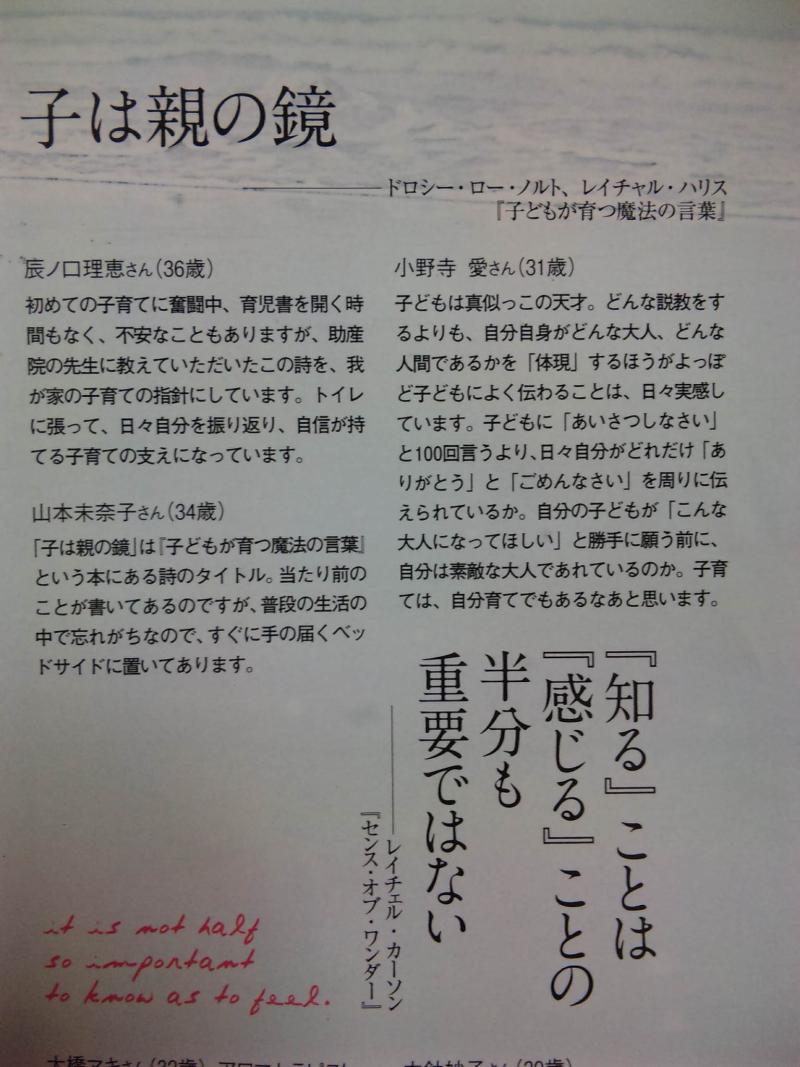 子は親の鏡
ドロシー・ロー・ノルト、レイチャル・ハリス
『子どもが育つ魔法の言葉』
辰ノ口理恵さん(36歳)
初めての子育てに奮闘中、育児書を開く時
間もなく、不安なこともありますが、助産
院の先生に教えていただいたこの詩を、我
が家の子育ての指針にしています。トイレ
に張って、日々自分を振り返り、自信が持
てる子育ての支えになっています。
山本未奈子さん(34歳)
「子は親の鏡」は『子どもが育つ魔法の言葉』
という本にある詩のタイトル。当たり前の
ことが書いてあるのですが、普段の生活の
中で忘れがちなので、すぐに手の届くベッ
ドサイドに置いてあります。
小野寺 愛さん(31歳)
子どもは真似っこの天才。どんな説教をす
るよりも、自分自身がどんな大人、どんな
人間であるかを「体現」するほうがよっぽ
ど子どもによく伝わることは、日々実感し
ています。子どもに「あいさつしなさい」
と100回言うより、日々自分がどれだけ「あ
りがとう」と「ごめんなさい」を周りに伝
えられているか。自分の子どもが「こんな
大人になってほしい」と勝手に願う前に、
自分は素敵な大人であれているのか。子育
ては、自分育てでもあるなあと思います。
『知る』ことは
『感じる』ことの
半分も
重要ではない
レイチェル・カーソン
『センス・オブ・ワンダー』
it is not half
so important
to know as to feel.